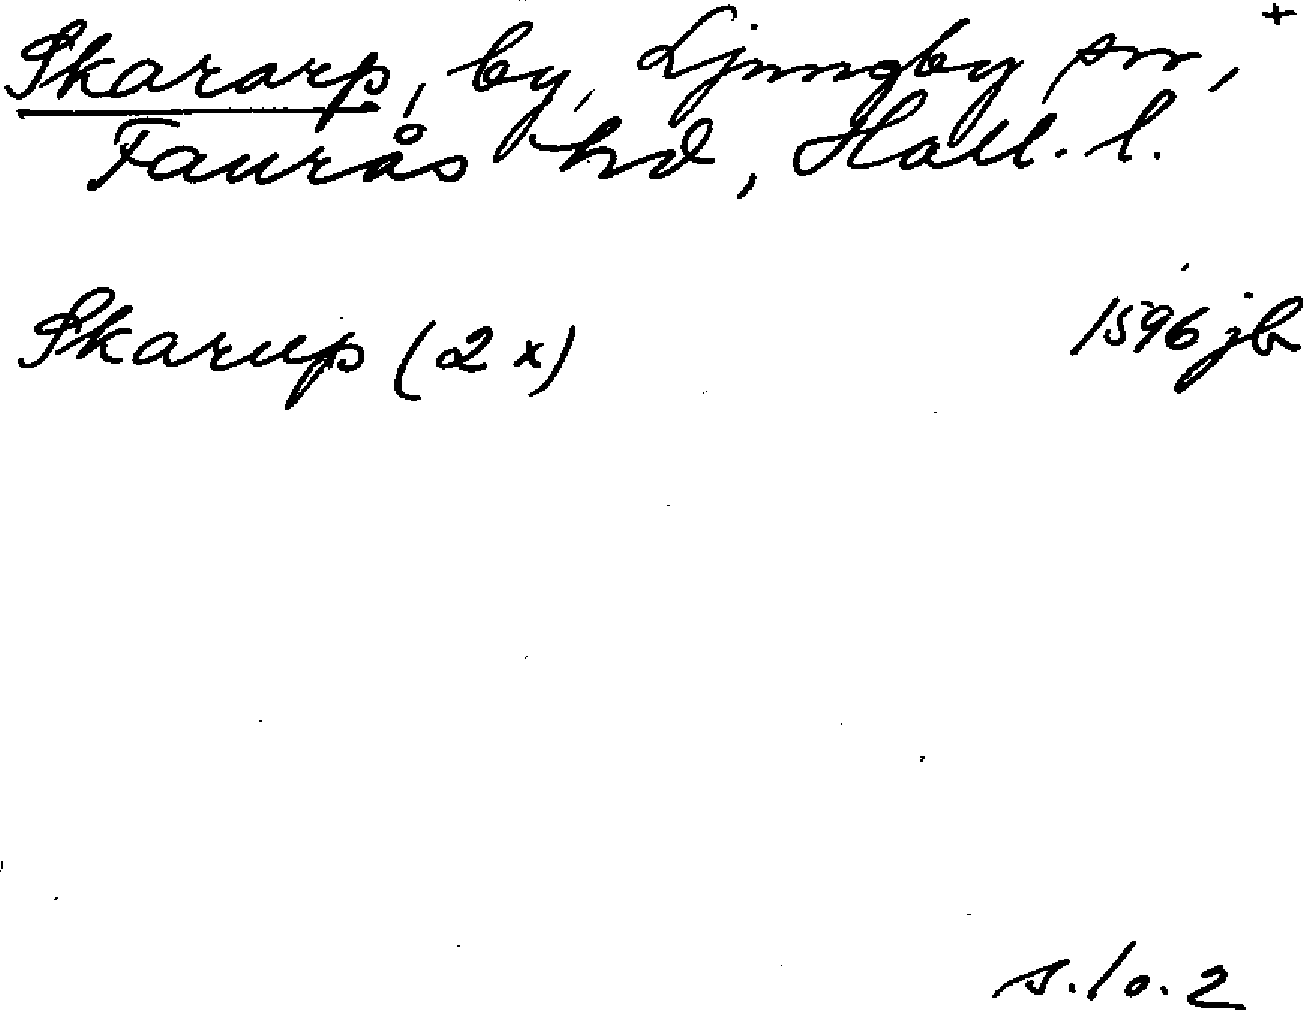 Skararp, by, Ljungby sn, +
Faurås hd, Hall. l.
Skarup (2 x) 1596 jb
s. 10. 2